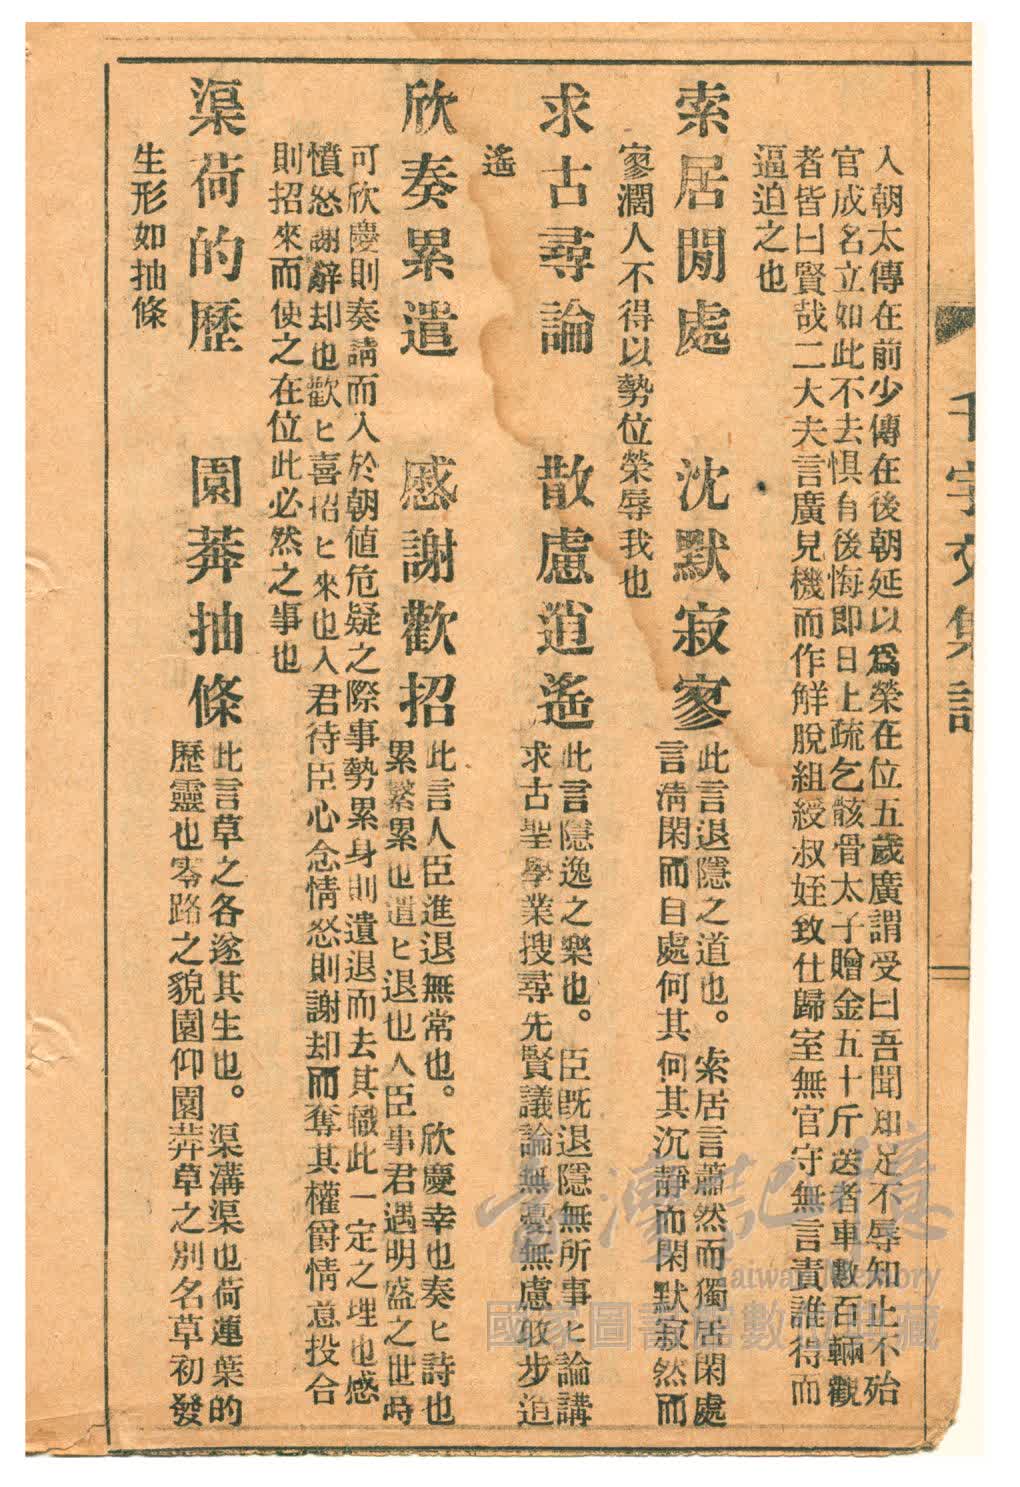 千字文集註
入朝太傳在前少傳在後朝延以爲榮在位五歲廣謂受曰吾聞知足不辱知止不殆
官成名立如此不去惧有後悔即日上疏乞骸骨太子贈金五十斤送者車數百輛觀
者皆曰賢哉二大夫言廣見機而作解脫組綬叔姪致仕歸室無官守無言責誰得而
逼迫之也
索居閒處 沈默寂寥
此言退隱之道也。索居言蕭然而獨居閑處
言淸閑而自處何其何其沉靜而閑默寂然而
寥濶人不得以勢位榮辱我也
求古尋論 散慮逍遙
此言隱逸之樂也。臣旣退隱無所事ヒ論講
求古聖學業搜尋先賢議論無憂無慮散步逍
遙
欣奏累遣 慼謝歡招
此言人臣進退無常也。欣慶幸也奏ヒ詩也
累繫累也遣ヒ退也人臣事君遇明盛之世時
可欣慶則奏請而入於朝値危疑之際事勢累身則遺退而去其職此一定之理也慼
憤怒謝辭却也歡ヒ喜招ヒ來也人君待臣心念情怒則謝却而奪其權爵情意投合
則招來而使之在位此必然之事也
渠荷的歷 園莽抽條
此言草之各遂其生也。渠溝渠也荷蓮葉的
歷靈也零路之貌園仰園莽草之別名草初發
生形如抽條
臺灣記憶
Taiwan Memory
國家圖書館數位典藏